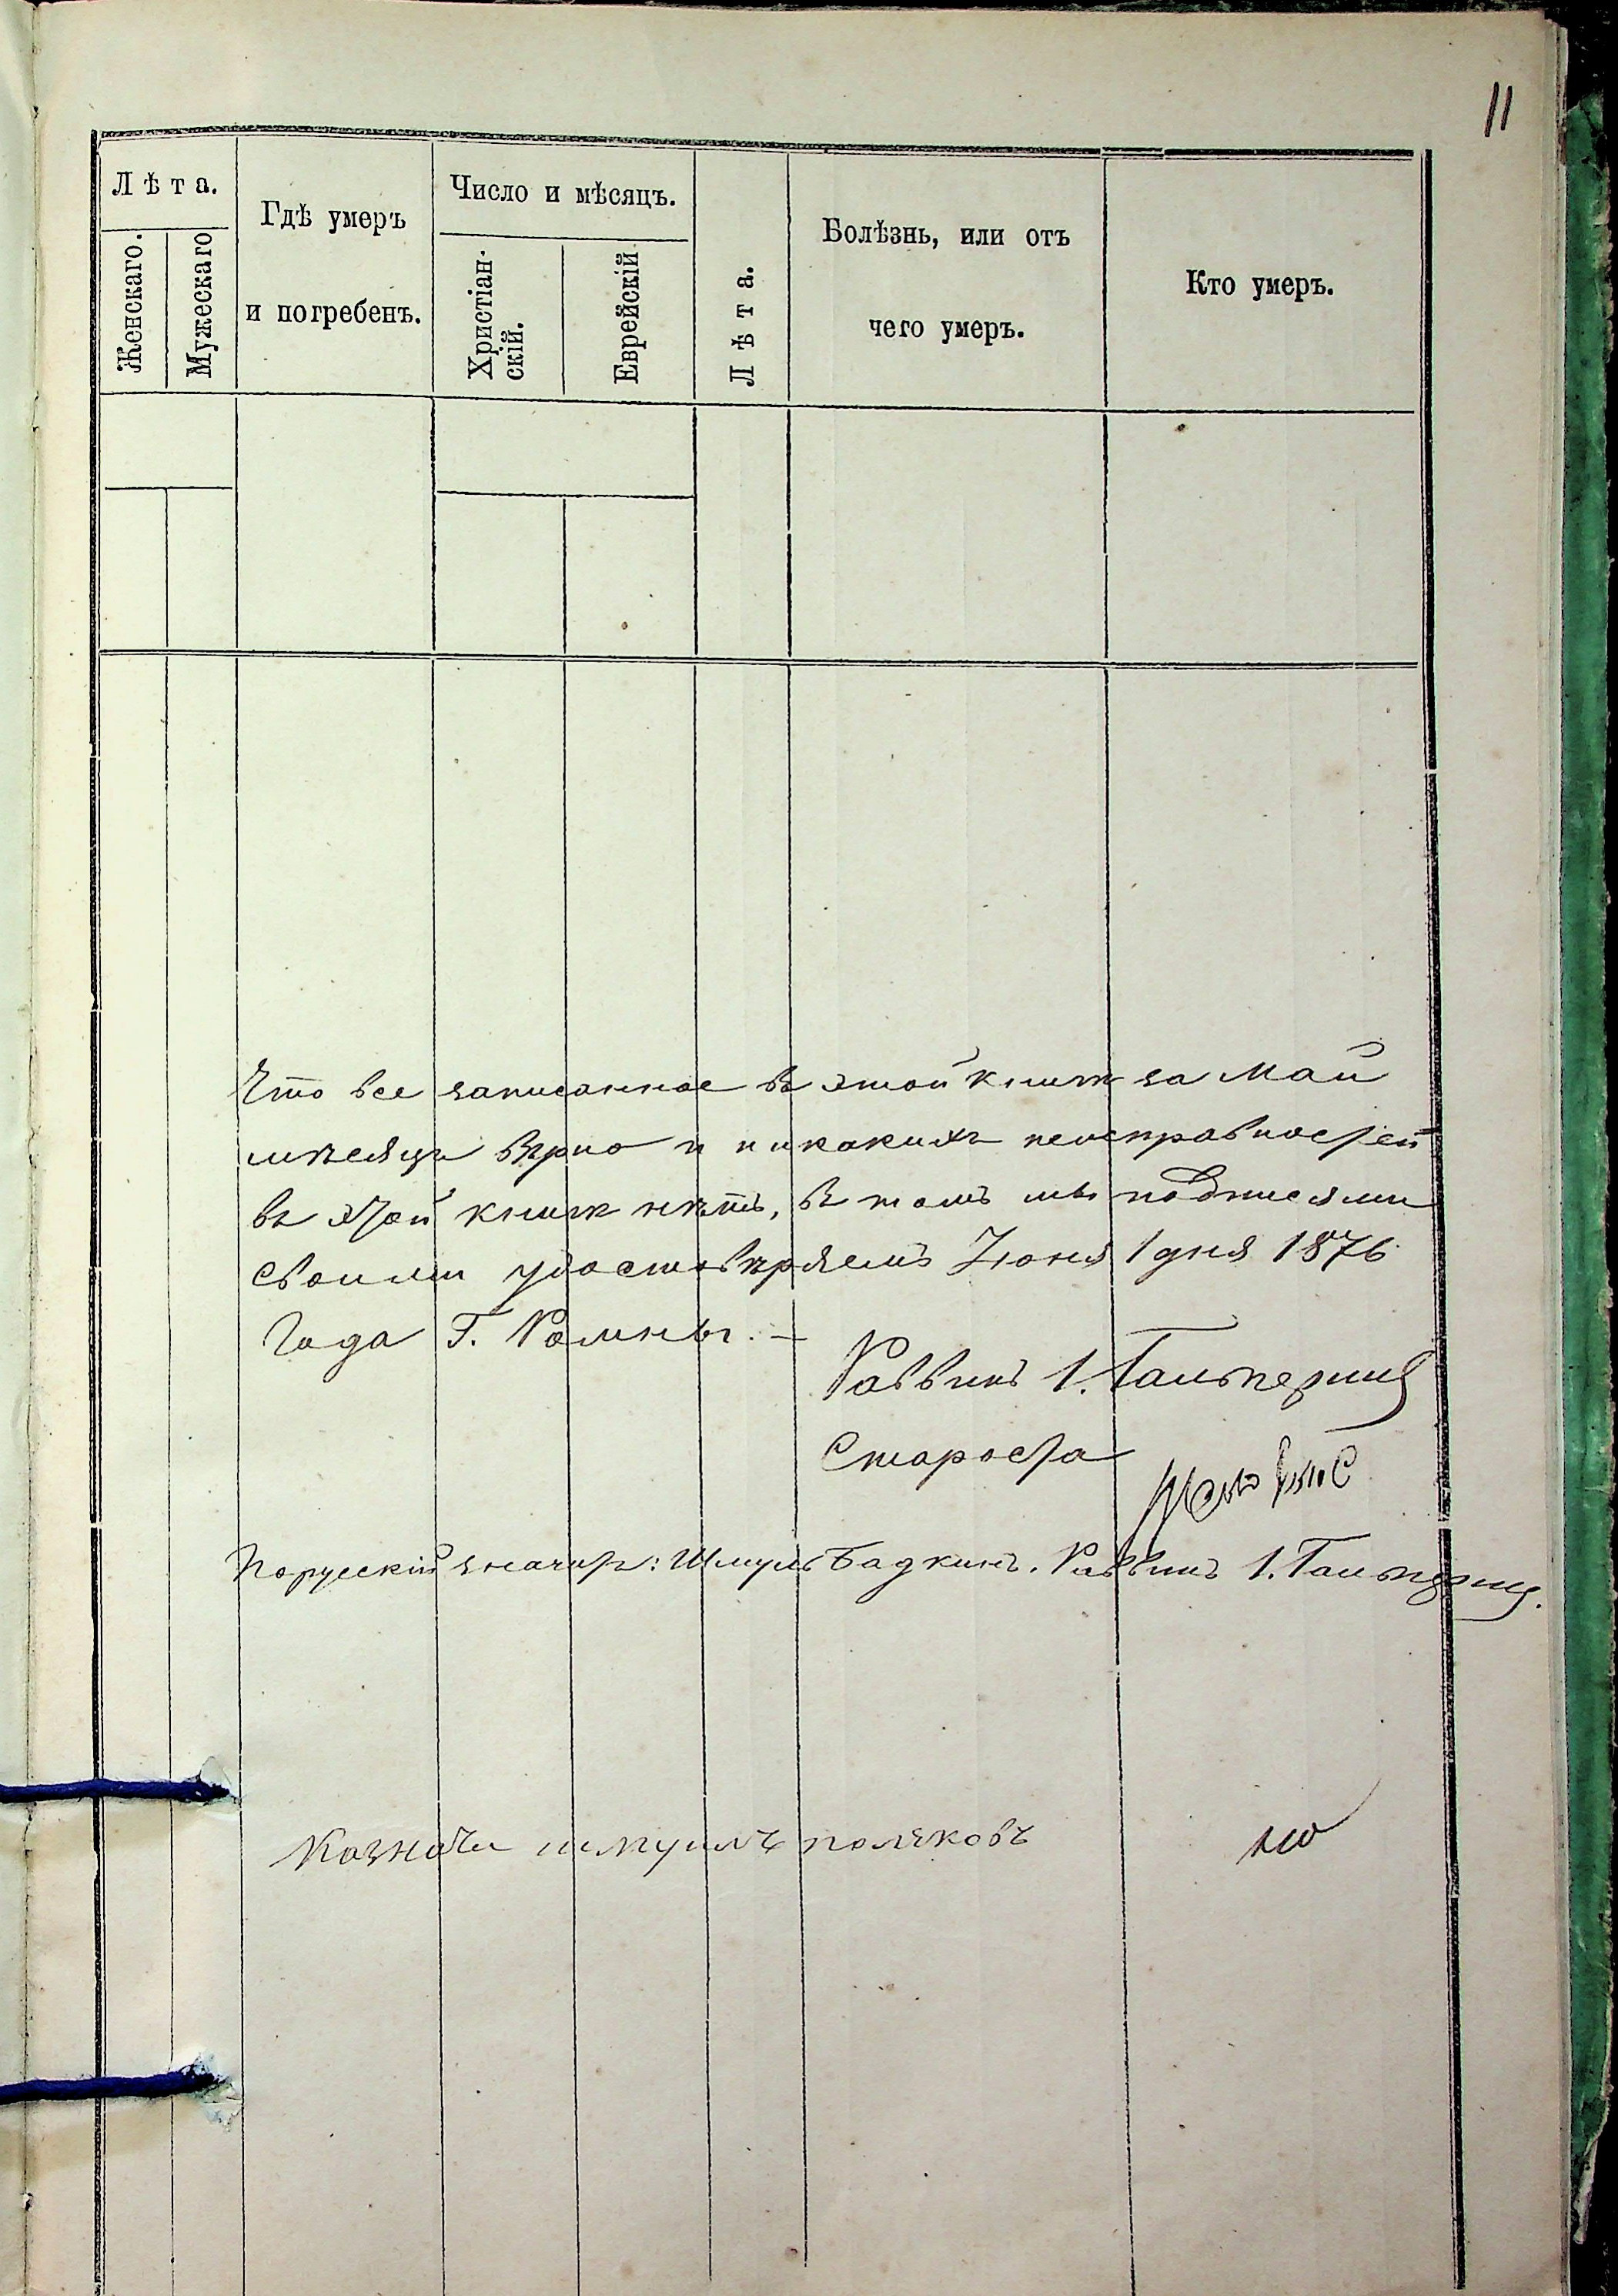 11
Лѣта.
Женскаго.
Мужескаго
Гдѣ умеръ
и погребенъ.
Число и мѣсяцъ.
Христіан-
скій.
Еврейскій
Лѣта.
Болѣзнь, или отъ
чего умеръ.
Кто умеръ.
Что все записанное въ этой книгѣ за Май
мѣсяцъ вѣрно и никакихъ неисправностей
въ этой книгѣ нѣтъ, въ томъ мы подписями
своими удостовѣряемъ Іюня 1 дня 1876
Года Г. Ромны. –
Раввинъ І. Гальперинъ
Староста
Порусскій значитъ: Шмуль Бадкинъ. Раввинъ І. Гальперинъ.
Казначи шмуилъ поляковъ